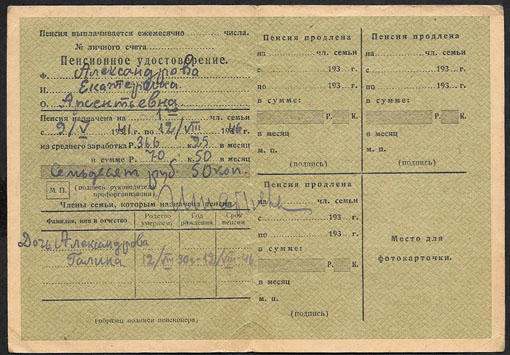 Пенсия выплачивается ежемесячно числа.
№ личного счета
Пенсионное удостоверение.
Ф. Александрова
И. Екатерина
О. Арсентьевна
Пенсия назначена на 1 чл. семьи
с 9/V 41 г. по 12/VIII 46 г.
из среднего заработка Р. 366 к. 25
в сумме Р. 70 к. 50 в месяц
Семьдесят руб. 50 коп.
М. П. (подпись руководителя профорганизации)
Члены семьи, которым назначена пенсия
Фамилия, имя и отчество Родство с умершим Год рождения Срок пенсии
Дочь Александрова
Галина 12/VIII 30г. 12/VIII-46
(образец подписи пенсионера)
Пенсия продлена
на чл. семьи
с 193 г.
по 193 г.
в сумме:
Р. К.
в месяц
м. п.
(подпись)
Пенсия продлена
на чл. семьи
с 193 г.
по 193 г.
в сумме:
Р. К.
в месяц
м. п.
(подпись)
Пенсия продлена
на чл. семьи
с 193 г.
по 193 г.
в сумме:
Р. К.
в месяц
м. п.
(подпись)
Место для
фотокарточки.